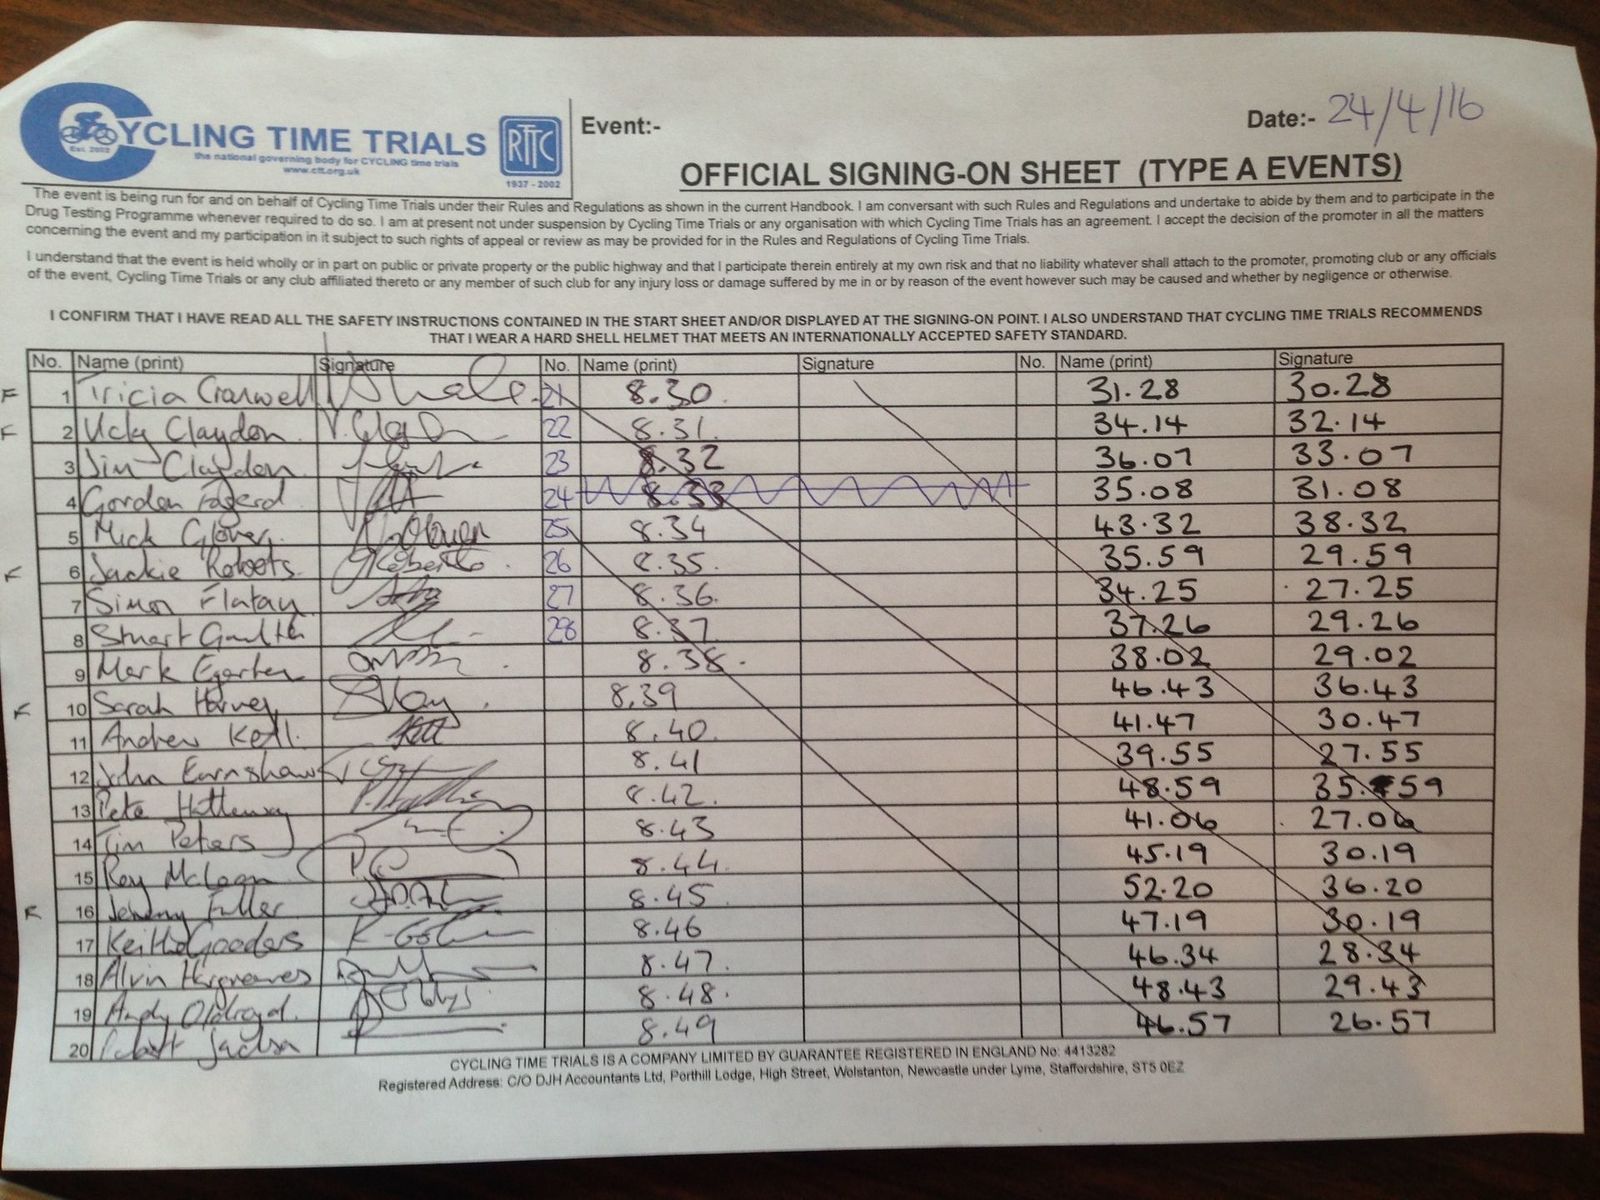 CYCLING TIME TRIALS
Est. 2002
the national governing body for CYCLING time trials
www.ctt.org.uk
RTTC
1937 - 2002
Event:-
Date:- 24/4/16
OFFICIAL SIGNING-ON SHEET (TYPE A EVENTS)
The event is being run for and on behalf of Cycling Time Trials under their Rules and Regulations as shown in the current Handbook. I am conversant with such Rules and Regulations and undertake to abide by them and to participate in the
Drug Testing Programme whenever required to do so. I am at present not under suspension by Cycling Time Trials or any organisation with which Cycling Time Trials has an agreement. I accept the decision of the promoter in all the matters
concerning the event and my participation in it subject to such rights of appeal or review as may be provided for in the Rules and Regulations of Cycling Time Trials.
I understand that the event is held wholly or in part on public or private property or the public highway and that I participate therein entirely at my own risk and that no liability whatever shall attach to the promoter, promoting club or any officials
of the event, Cycling Time Trials or any club affiliated thereto or any member of such club for any injury loss or damage suffered by me in or by reason of the event however such may be caused and whether by negligence or otherwise.
I CONFIRM THAT I HAVE READ ALL THE SAFETY INSTRUCTIONS CONTAINED IN THE START SHEET AND/OR DISPLAYED AT THE SIGNING-ON POINT. I ALSO UNDERSTAND THAT CYCLING TIME TRIALS RECOMMENDS
THAT I WEAR A HARD SHELL HELMET THAT MEETS AN INTERNATIONALLY ACCEPTED SAFETY STANDARD.
No. Name (print) Signature No. Name (print) Signature No. Name (print) Signature
F 1 Tricia Cranwell 21 8.30 31.28 30.28
F 2 Vicky Claydon 22 8.31 34.14 32.14
3 Jim Claydon 23 8.32 36.07 33.07
4 Gordon 24 8.33 35.08 31.08
5 Mick Glover 25 8.34 43.32 38.32
F 6 Jackie Roberts 26 8.35 35.59 29.59
7 Simon 27 8.36 34.25 27.25
8 Stuart 28 8.37 37.26 29.26
9 Mark Egerton 8.38 38.02 29.02
F 10 Sarah Harvey 8.39 46.43 36.43
11 Andrew 8.40 41.47 30.47
12 John Earnshaw 8.41 39.55 27.55
13 Pete 8.42 48.59 35.59
14 Tim Peters 8.43 41.06 27.06
15 Roy 8.44 45.19 30.19
F 16 Jeremy Fuller 8.45 52.20 36.20
17 Keith Gooders 8.46 47.19 30.19
18 Alvin Hargreaves 8.47 46.34 28.34
19 Andy Oldroyd 8.48 48.43 29.43
20 Robert Jackson 8.49 46.57 26.57
CYCLING TIME TRIALS IS A COMPANY LIMITED BY GUARANTEE REGISTERED IN ENGLAND No: 4413282
Registered Address: C/O DJH Accountants Ltd, Porthill Lodge, High Street, Wolstanton, Newcastle under Lyme, Staffordshire, ST5 0EZ